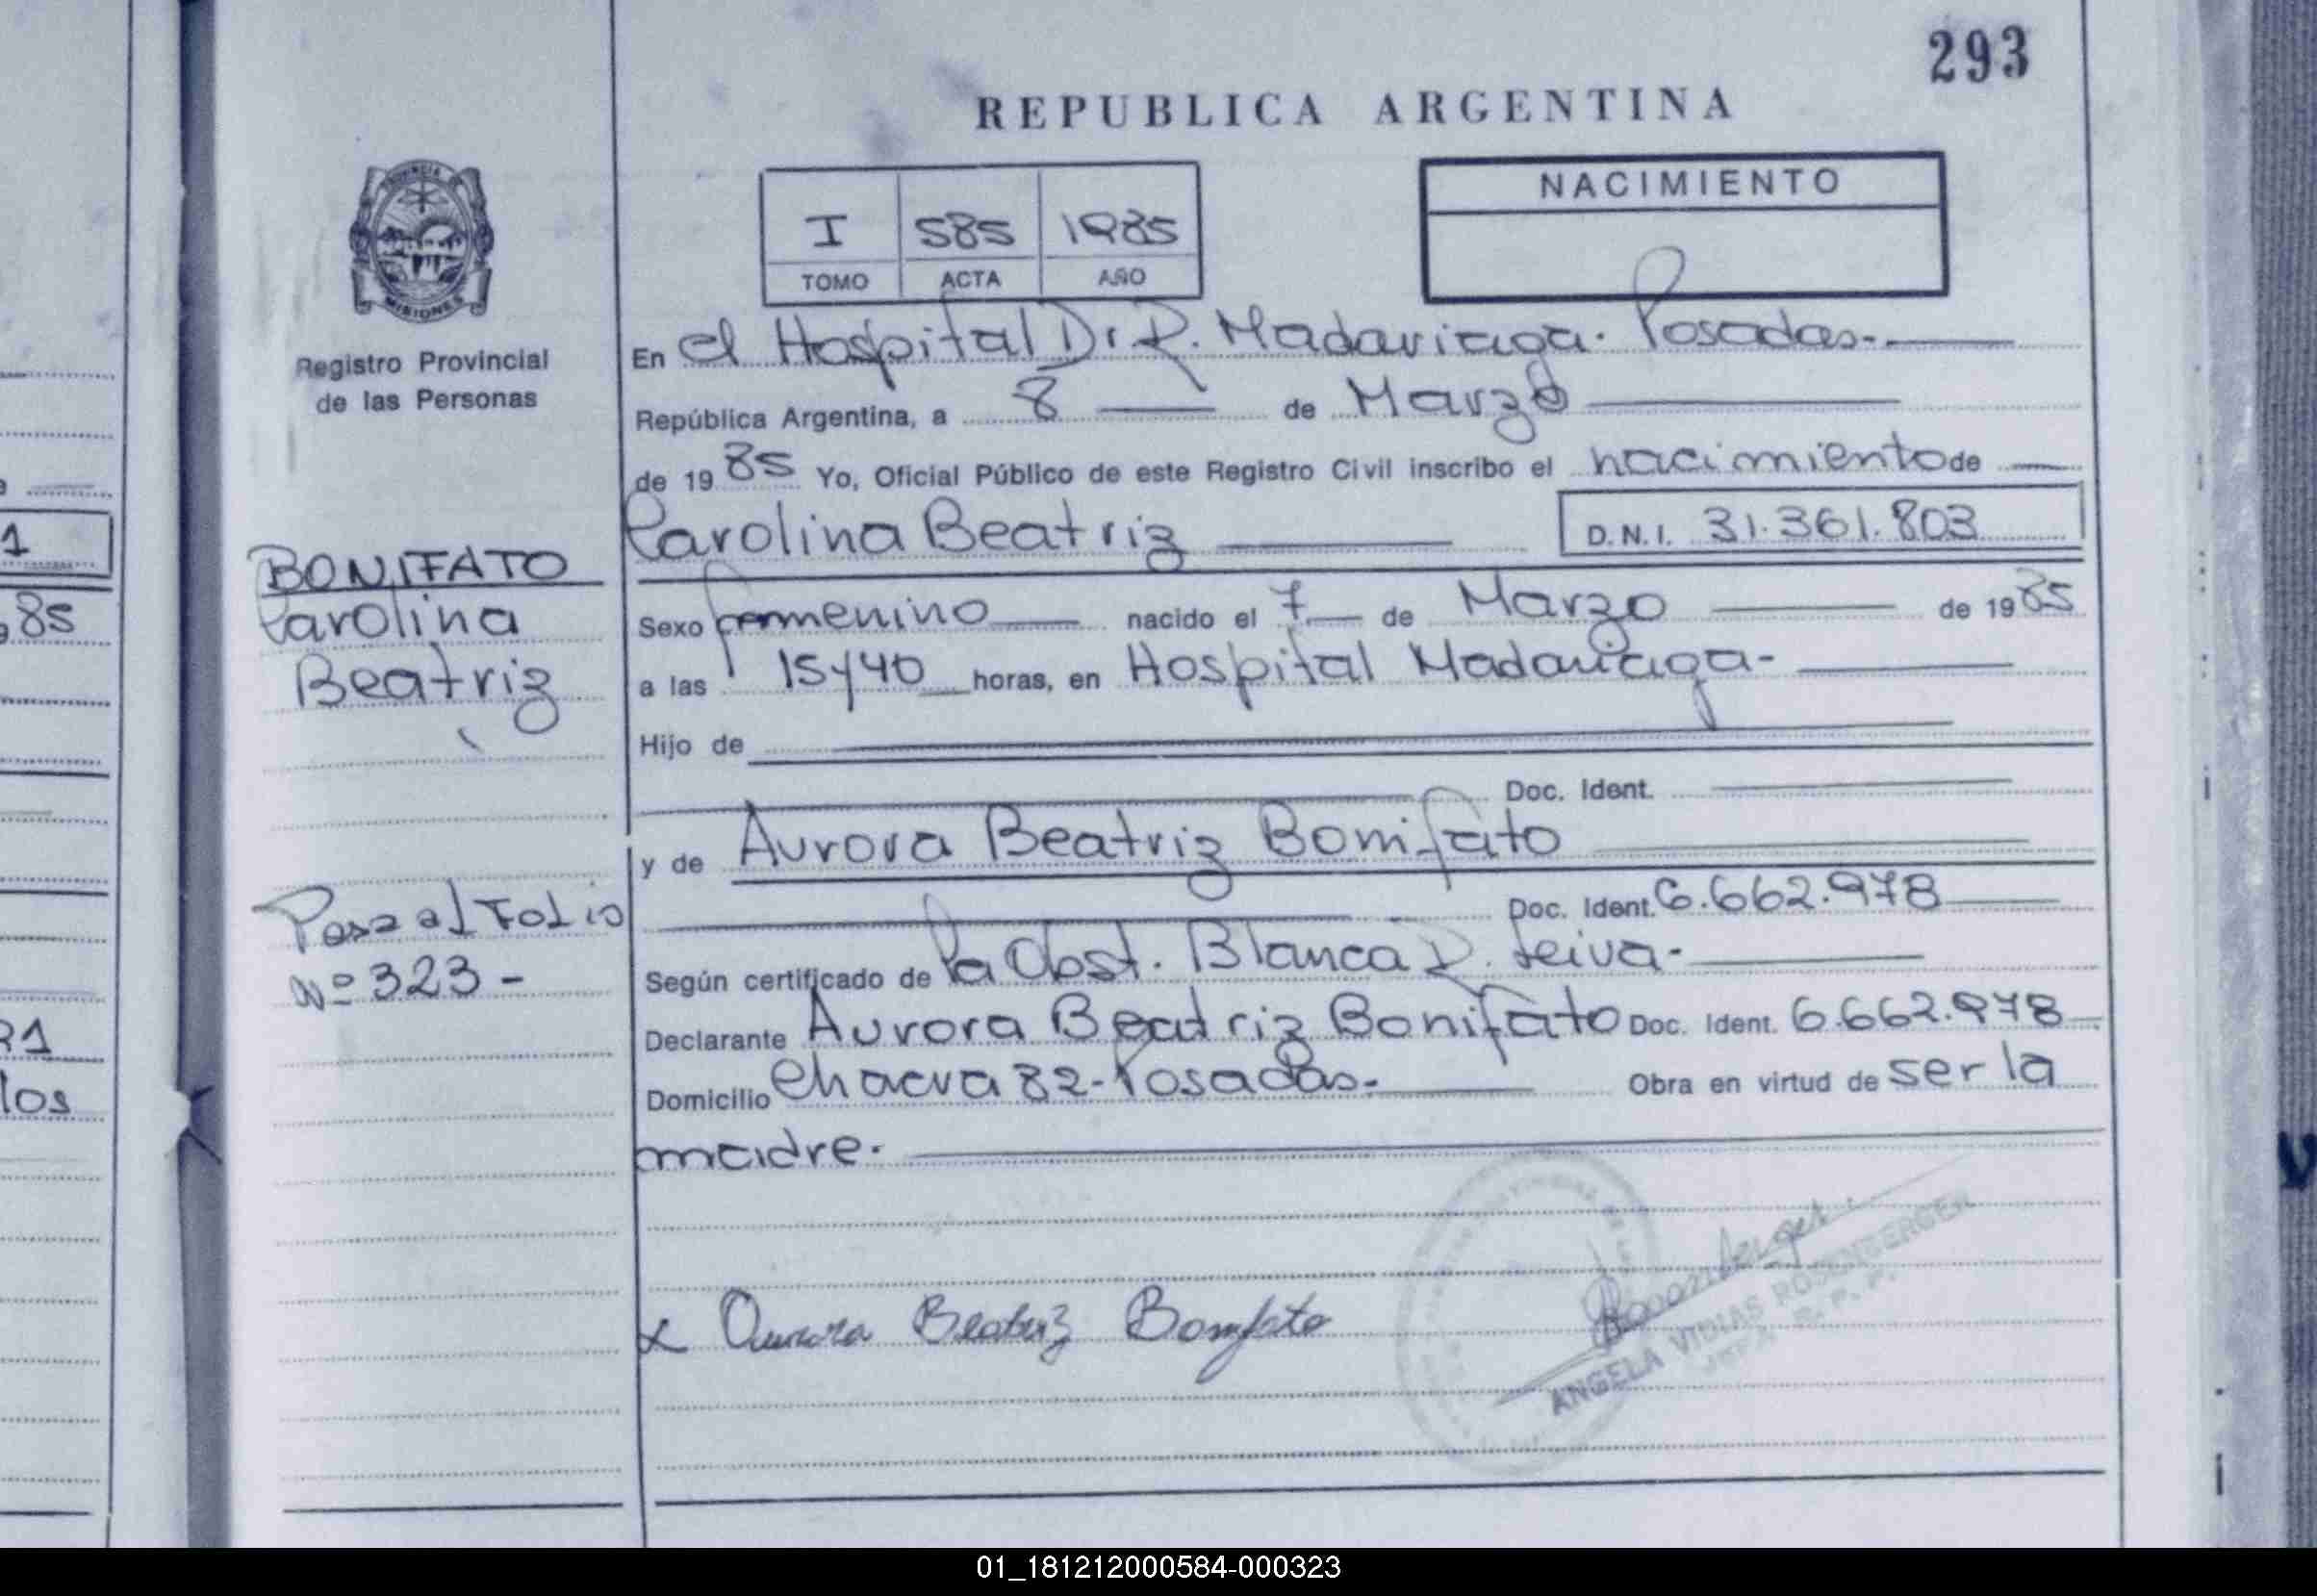 293
REPUBLICA ARGENTINA
PROVINCIA DE
MISIONES
Registro Provincial
de las Personas
I 585 1985
TOMO ACTA AÑO
NACIMIENTO
En el Hospital Dr R. Madariaga. Posadas.-
República Argentina, a 8 de Marzo
de 1985 Yo, Oficial Público de este Registro Civil inscribo el nacimiento de
Carolina Beatriz D.N.I. 31.361.803
Sexo femenino nacido el 7 de Marzo de 1985
a las 15y40 horas, en Hospital Madariaga-
Hijo de
Doc. Ident.
y de Aurora Beatriz Bonifato
Doc. Ident. 6.662.978
Según certificado de la Obst. Blanca R. Leiva-
Declarante Aurora Beatriz Bonifato Doc. Ident. 6.662.978
Domicilio Chacra 82-Posadas.- Obra en virtud de ser la
madre.
x Aurora Beatriz Bonifato
ANGELA VIDIAS ROSENBERGER
JEFA R. P. P.
BONIFATO
Carolina
Beatriz
Pasa al Folio
Nº 323-
1
85
21
los
01_181212000584-000323